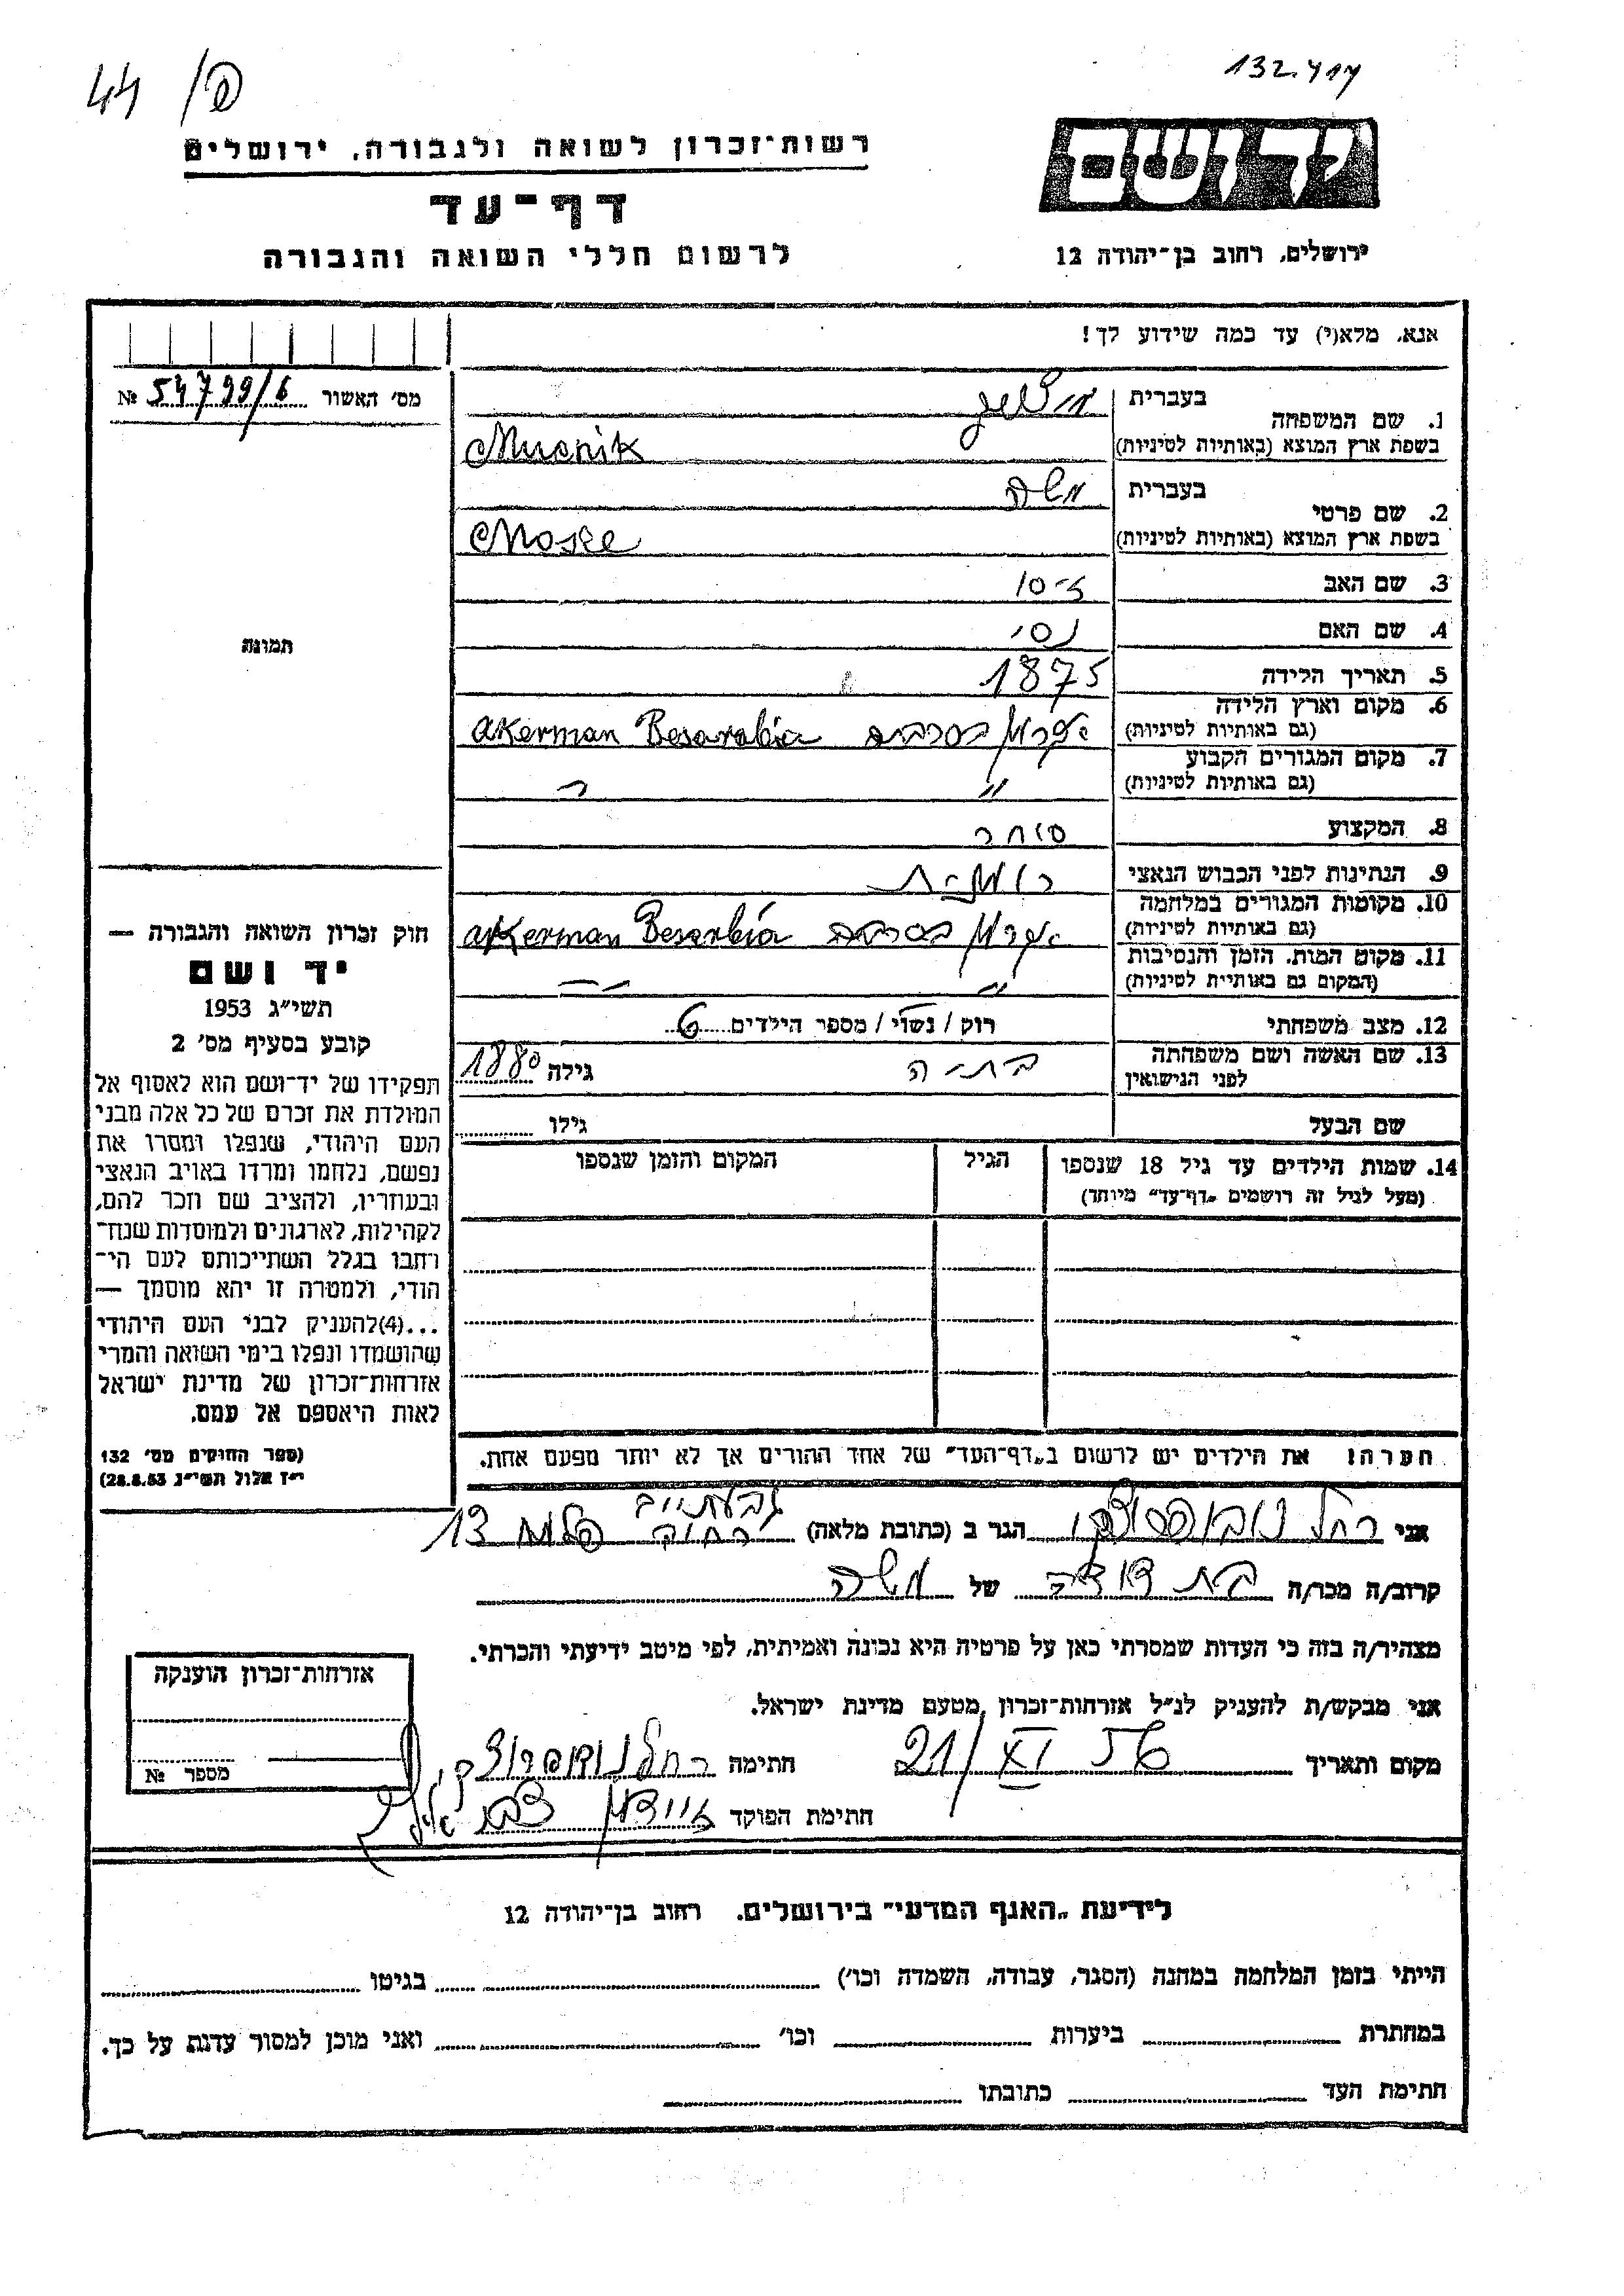 44 /פ
132.414
רשות־זכרון לשואה ולגבורה, ירושלים
דף־עד
לרשום חללי השואה והגבורה
יד ושם
ירושלים, רחוב בן־יהודה 12
אנא, מלא(י) עד כמה שידוע לך!
מס׳ האשור 54799/6 №
תמונה
1. שם המשפחה בעברית
בשפת ארץ המוצא (באותיות לטיניות) Mucnik
2. שם פרטי בעברית משה
בשפת ארץ המוצא (באותיות לטיניות) Mosee
3. שם האב
4. שם האם נסי
5. תאריך הלידה 1875
6. מקום וארץ הלידה
(גם באותיות לטיניות) אקרמן בסרביה Akerman Besarabia
7. מקום המגורים הקבוע
(גם באותיות לטיניות) ״ ״
8. המקצוע סוחר
9. הנתינות לפני הכבוש הנאצי רומנית
10. מקומות המגורים במלחמה
(גם באותיות לטיניות) אקרמן בסרביה Akerman Besarbia
11. מקום המות, הזמן והנסיבות
(המקום גם באותיית לטיניות) ״ ״
12. מצב משפחתי רוק / נשוי / מספר הילדים 6
13. שם האשה ושם משפחתה
לפני הנישואין בתיה גילה 1880
שם הבעל גילו
14. שמות הילדים עד גיל 18 שנספו הגיל המקום והזמן שנספו
(מעל לגיל זה רושמים „דף־עד״ מיוחד)
הערה: את הילדים יש לרשום ב„דף־העד״ של אחד ההורים אך לא יותר מפעם אחת.
חוק זכרון השואה והגבורה —
יד ושם
תשי״ג 1953
קובע בסעיף מס׳ 2
תפקידו של יד־ושם הוא לאסוף אל
המולדת את זכרם של כל אלה מבני
העם היהודי, שנפלו ומסרו את
נפשם, נלחמו ומרדו באויב הנאצי
ובעוזריו, ולהציב שם וזכר להם,
לקהילות, לארגונים ולמוסדות שנח־
רחבו בגלל השתייכותם לעם הי־
הודי, ולמטרה זו יהא מוסמך —
...(4)להעניק לבני העם היהודי
שהושמדו ונפלו בימי השואה והמרי
אזרחות־זכרון של מדינת ישראל
לאות היאספם אל עמם.
(ספר החוקים מס׳ 132
י״ז אלול תשי״ג 28.8.53)
גבעתיים
אני רחל הגר ב (כתובת מלאה) רחוב 13
קרוב/ה מכר/ה בת דודה של משה
מצהיר/ה בזה כי העדות שמסרתי כאן על פרטיה היא נכונה ואמיתית, לפי מיטב ידיעתי והכרתי.
אני מבקש/ת להעניק לנ״ל אזרחות־זכרון מטעם מדינת ישראל.
מקום ותאריך 21/XI 56 חתימה רחל
חתימת הפוקד
אזרחות־זכרון הוענקה
מספר №
לידיעת „האגף המדעי״ בירושלים, רחוב בן־יהודה 12
הייתי בזמן המלחמה במחנה (הסגר, עבודה, השמדה וכו׳) בגיטו
במחתרת ביערות וכו׳ ואני מוכן למסור עדות על כך.
חתימת העד כתובתו